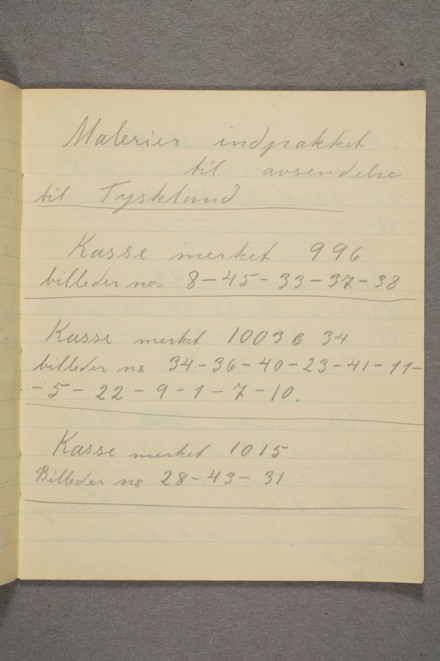 Malerier indpakket
til avsendelse
til Tyskland
Kasse merket 996
billeder nos 8-45-33-37-38
Kasse merket 1003 34
billeder ns 34-36-40-23-41-11-
-5-22-9-1-7-10.
Kasse merket 1015
Billeder ns 28-43-31